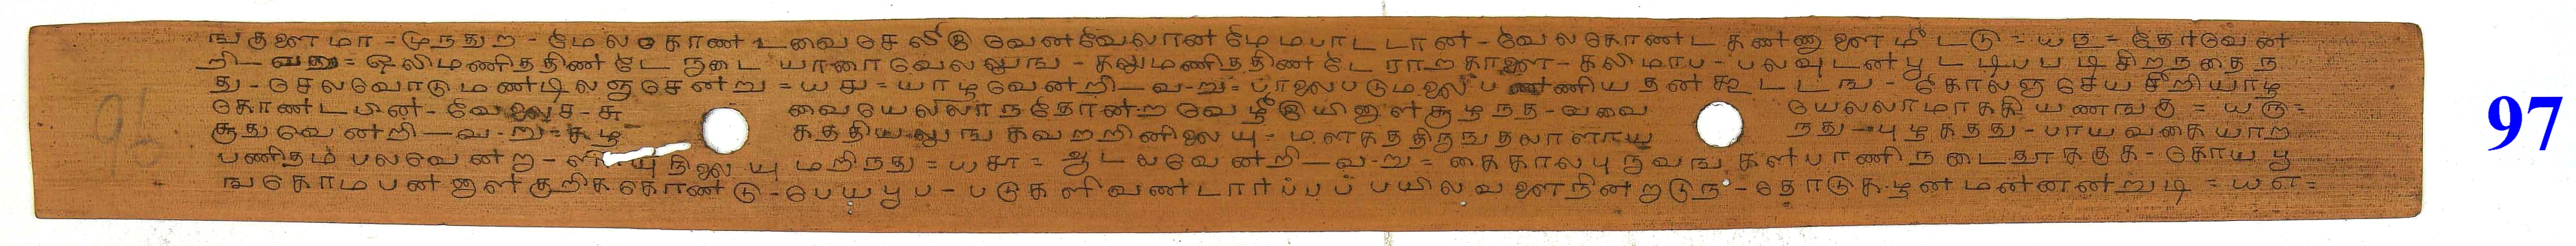 ஙகுளைமா - முநதுற - மேலகொண டவைசெலீஇ வெனவேலான மேமபாட டான - வேலகொணட கணணாளை மீடடு = யந = தோவென
றி — வது = ஒலிமணிததிண டே ருடை யானா வெலலுங - கலுமணிததிண டே ராற காளை - கலிமாப - பலவுடனபூடடிபப டிசிறநதைந
து - செலவோடுமணடிலஞசெனறு = யசு = யாழவெனறி — வ - று = பாலைபடுமலை பணணியதன கூடடங - கோலஞசெயசீறியாழ
கொணடபின - வேலைச - சு வையெலலாநதோனறவெழீஇயினாளசூழநத - வவை யெலலாமாககியணஙகு = யரு =
சூதுவெனறி — வ - று = கழ கததியலுஙகவறறினிலையு - மளகததிருநதலாளாய நது — புழகதது - பாயவகையாற
பணிதம பலவெனறு - ளியுநிலையுமறிநது = யசா = ஆடலவெனறி — வ - று = கைகாலபுருவங களபாணிநடைதூககுக - கொயபூ
ஙகொமபனனாளகுறிககொணடு - பெயபூப - படுகளிவணடாாபபப பயிலவளைநினறாடுந - தொடுகழனமனனனறுடி = யஎ =
97
96